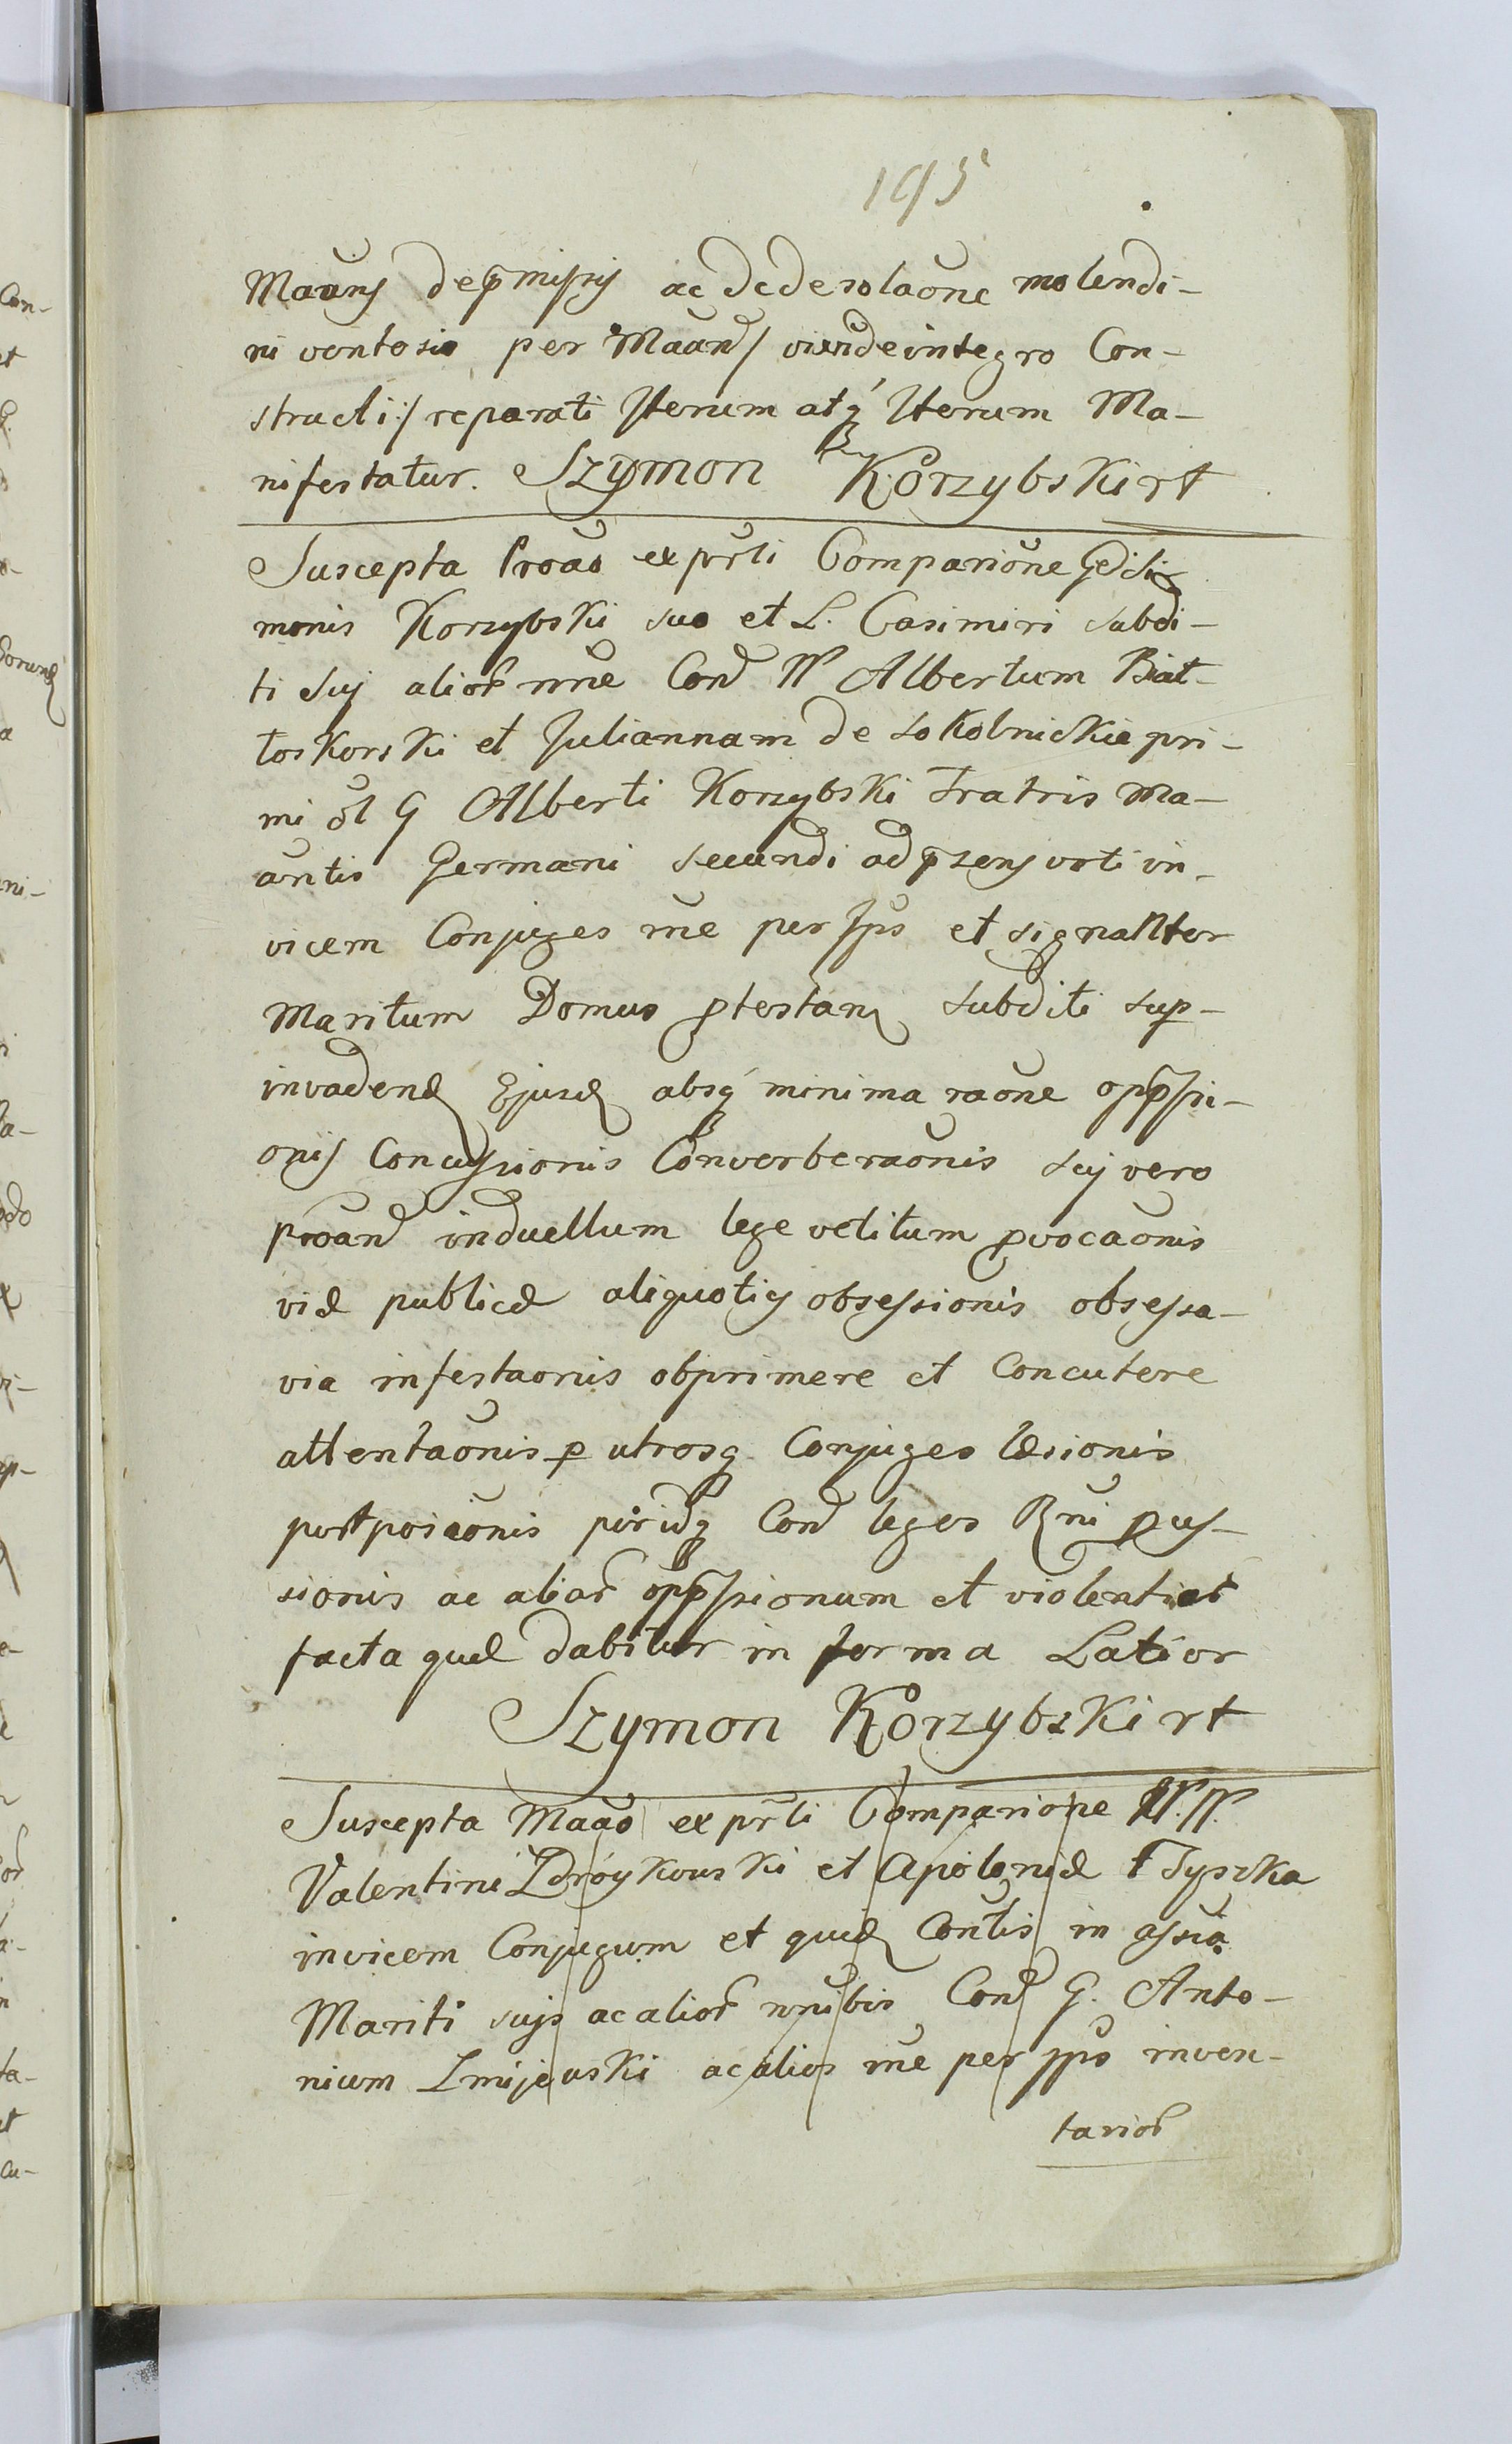 195
Maans de pmissis ac de desolaone molendi-
ni ventosis per Maand/ vi de integro Con-
structi:/ reparati Iterum atq Iterum Ma-
nifestatur. Szymon Korzybski rt
Suscepta Proao ex prti Comparione Gdi Si
monis Korzybski suo et L. Casimiri subdi-
ti sui alior nne Cond N Albertum Biał-
łoskorski et Juliannam de Sokolnickie pri-
mi ol G Alberti Korzybski Fratris Ma-
antis Germani secundi ad psens voti in-
vicem Conjuges rne per Ips et signanter
Maritum Domus ptestan subditi sup-
invadend Ejusd absq minima raone oppssi-
onis Concussionis Converberaonis sui vero
proand in duellum lege vetitum pvocaonis
viæ publicæ aliquotis obsessionis obsessa-
via infestaonis obprimere et Concutere
attentaonis p utrosq Conjuges læsionis
postposiaonis Cond leges Rni pcus-
sionis ac aliar oppssionum et violentiar
facta quæ dabitur in forma Latior
Szymon Korzybski rt
Suscepta Maao ex prti Comparione
Valentini Zdroykowski et Apoloniæ Tyszka
invicem Conjugum et quid Contis in assia
Mariti sujs ac alior nnibis Cond G. Anto-
nium Zmijewski ac alios rne per ips inven-
tarior